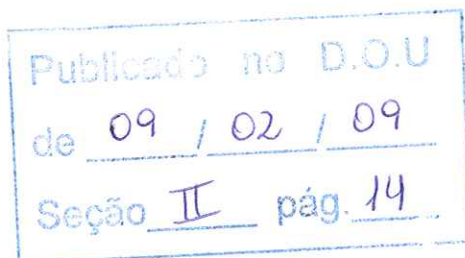 Publicado no D.O.U
de 09 / 02 / 09
Seção II pág. 14